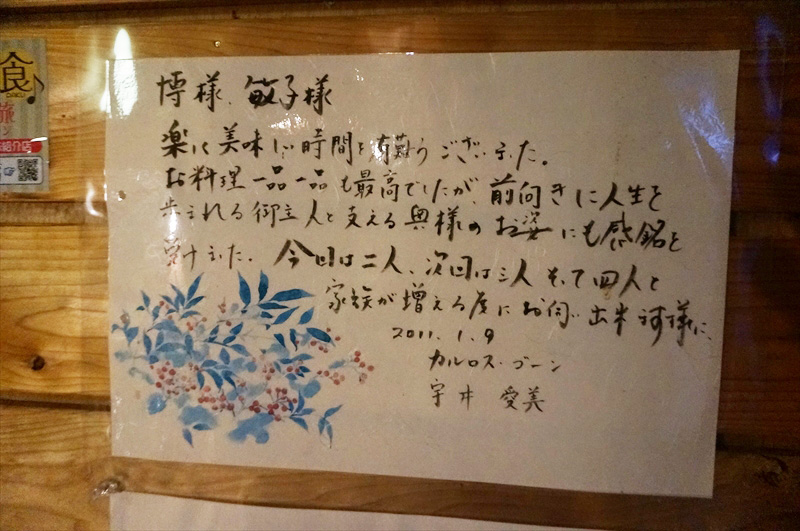 博様、敏子様
楽しく美味しい時間を有難うございました。
お料理一品一品も最高でしたが、前向きに人生を
歩まれる御主人と支える奥様のお姿にも感銘を
受けました。今回は二人、次回は三人そして四人と
家族が増える度にお伺い出来ます様に、
2011.1.9
カルロス・ゴーン
宇井 愛美
食
旅
紹介店